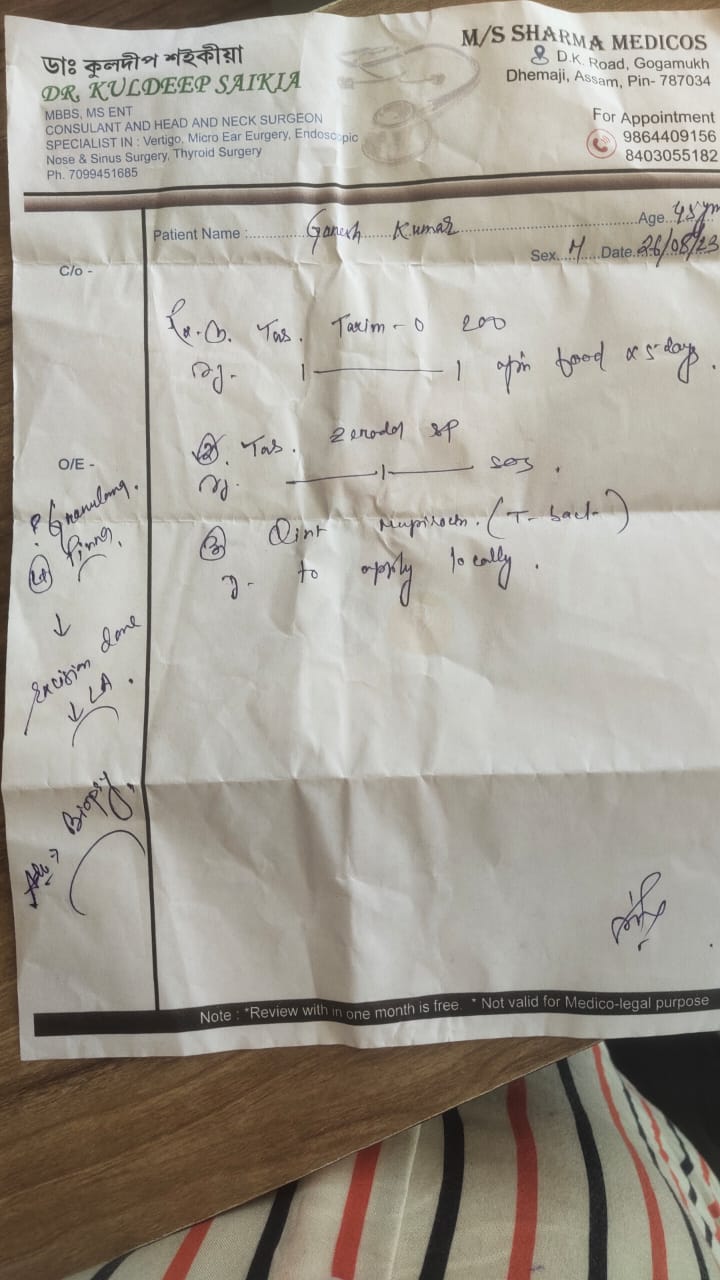 ডাঃ কুলদীপ শইকীয়া
DR. KULDEEP SAIKIA
MBBS, MS ENT
CONSULANT AND HEAD AND NECK SURGEON
SPECIALIST IN : Vertigo, Micro Ear Eurgery, Endoscopic
Nose & Sinus Surgery, Thyroid Surgery
Ph. 7099451685
M/S SHARMA MEDICOS
D.K. Road, Gogamukh
Dhemaji, Assam, Pin- 787034
For Appointment
9864409156
8403055182
Patient Name :............Ganesh Kumar............Age..45
Sex...M....Date.26/08/23
C/o -
Rx. Tab. Taxim-O 200
1 ——— 1 food x 5 days.
② Tab. Zerodol SP
——1—— SOS.
③ Oint Mupirocin. (T-bact)
to apply locally.
O/E -
? Granuloma.
Pinna.
↓
Excision done
↓ LA.
Adv → Biopsy.
Note : *Review with in one month is free. * Not valid for Medico-legal purpose